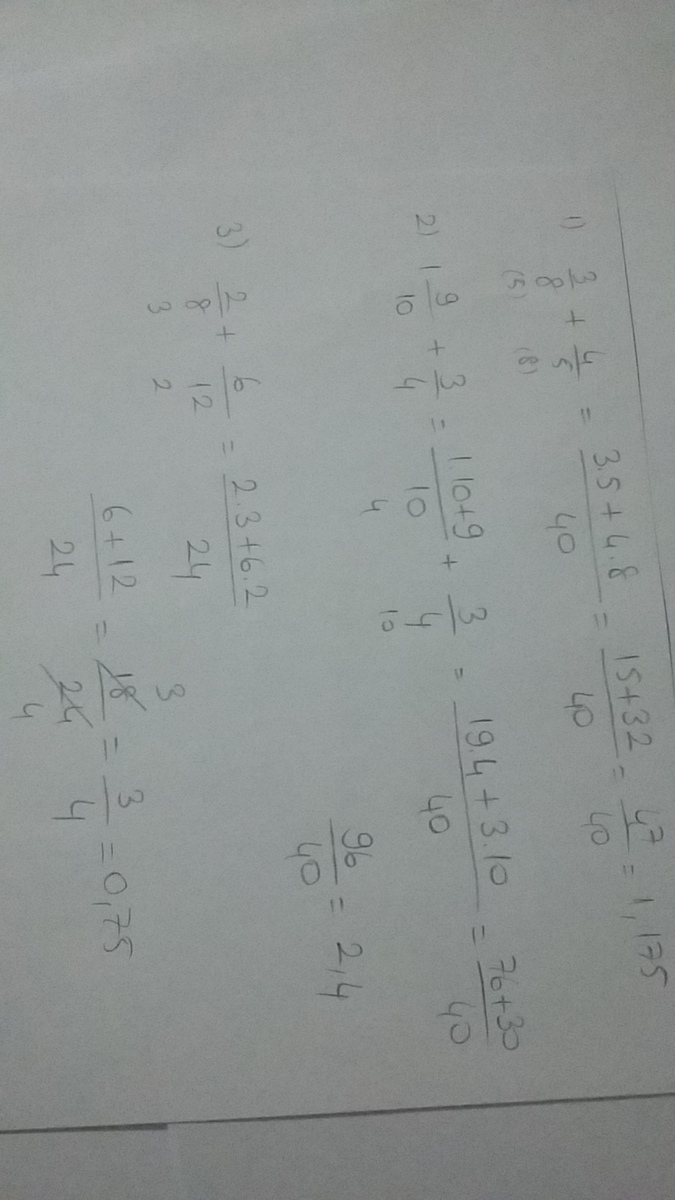 1) 3/8 + 4/5 = 3.5 + 4.8/40 = 15+32/40 = 47/40 = 1,175
(5) (8)
2) 1 9/10 + 3/4 = 1.10+9/10 + 3/4 = 19.4 + 3.10/40 = 76+30/40
4 10
96/40 = 2,4
3) 2/8 + 6/12 = 2.3+6.2/24
3 2
3
6+12/24 = 18/24 = 3/4 = 0,75
4